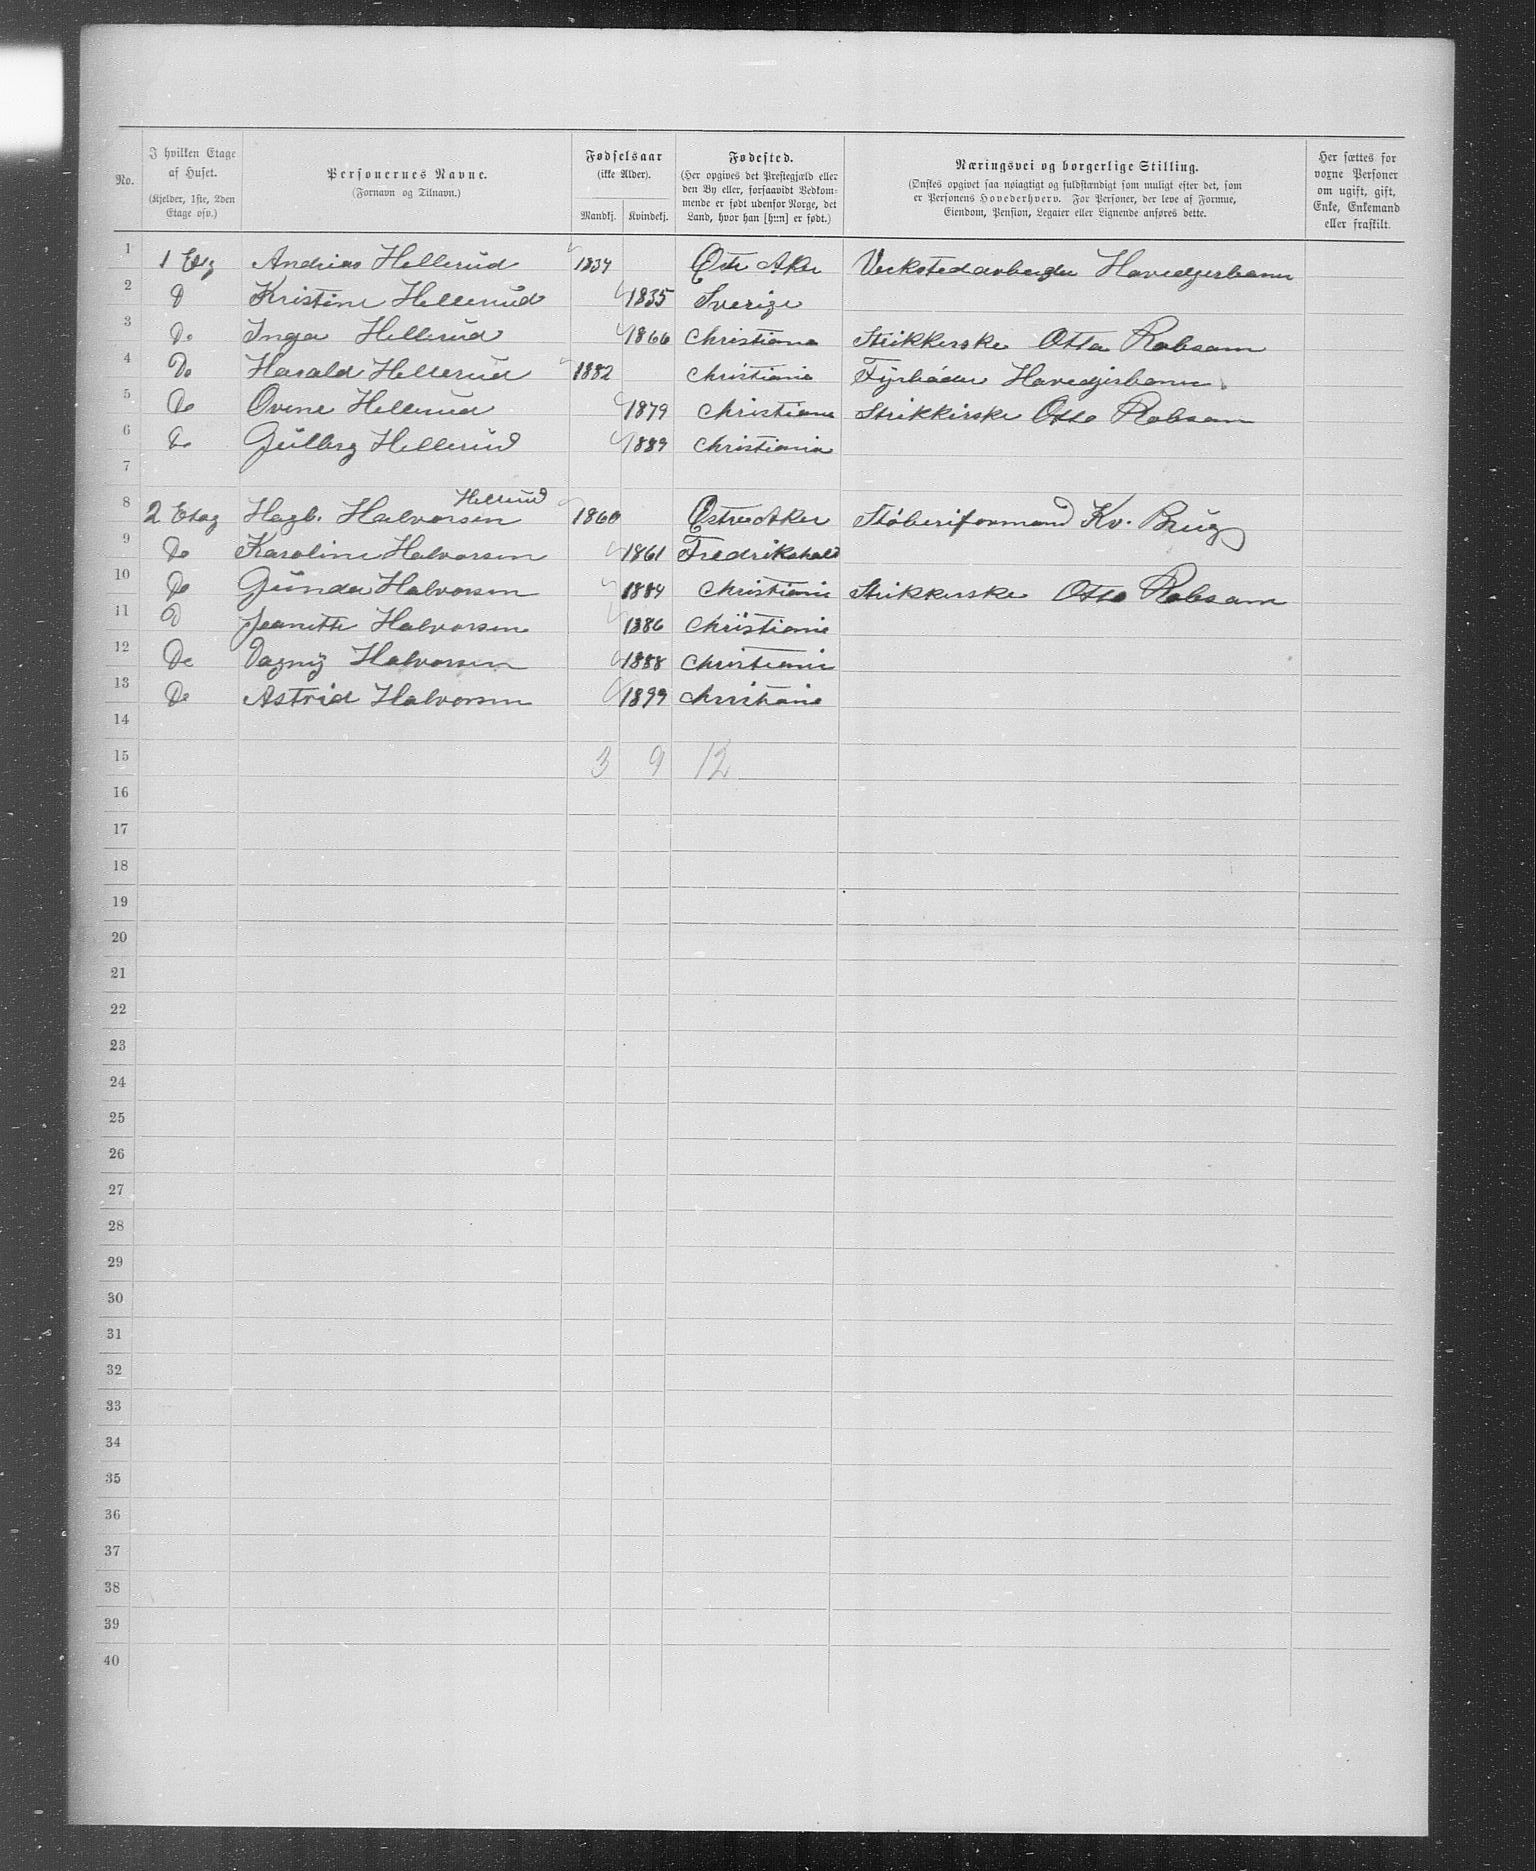 No.
I hvilken Etage af Huset.
(Kjelder, 1ste, 2den Etage osv.)
Personernes Navne.
(Fornavn og Tilnavn.)
Fødselsaar
(ikke Alder).
Mandkj. Kvindekj.
Fødested.
(Her opgives det Prestegjæld eller den By eller, forsaavidt Vedkommende er født udenfor Norge, det Land, hvor han [hun] er født.)
Næringsvei og borgerlige Stilling.
(Ønskes opgivet saa nøiagtigt og fuldstændigt som muligt efter det, som er Personens Hovederhverv. For Personer, der leve af Formue, Eiendom, Pension, Legater eller Lignende anføres dette.
Her sættes for voxne Personer om ugift, gift, Enke, Enkemand eller fraskilt.
1 1 Etg Andrias Hellerud 1834 Østr Aker Verkstedarbeyder Hovedjerbanen
2 D Kristine Hellerud 1835 Sverige
3 Do Inga Hellerud 1866 Christiana Strikkerske Otto Robsam
4 Do Harald Hellerud 1882 Christiania Fyrbøder Hovedjerbanen
5 Do Ovine Hellerud 1879 Christiana Strikkirske Otto Robsam
6 Do Gulberg Hellerud 1889 Christiania
7
Hellerud
8 2 Etag Hagb. Halvorsen 1860 Østre Aker Støberiformand Kv. Brug
9 Do Karoline Halvorsen 1861 Fredrikshald
10 Do Gunda Halvorsen 1884 Christiani Strikkerske Otto Robsam
11 D Jeanette Halvorsen 1886 Christianie
12 Do Dagny Halvorsen 1888 Christiani
13 Do Astrid Halvorsen 1899 Christiania
14
15 3 9 12
16
17
18
19
20
21
22
23
24
25
26
27
28
29
30
31
32
33
34
35
36
37
38
39
40